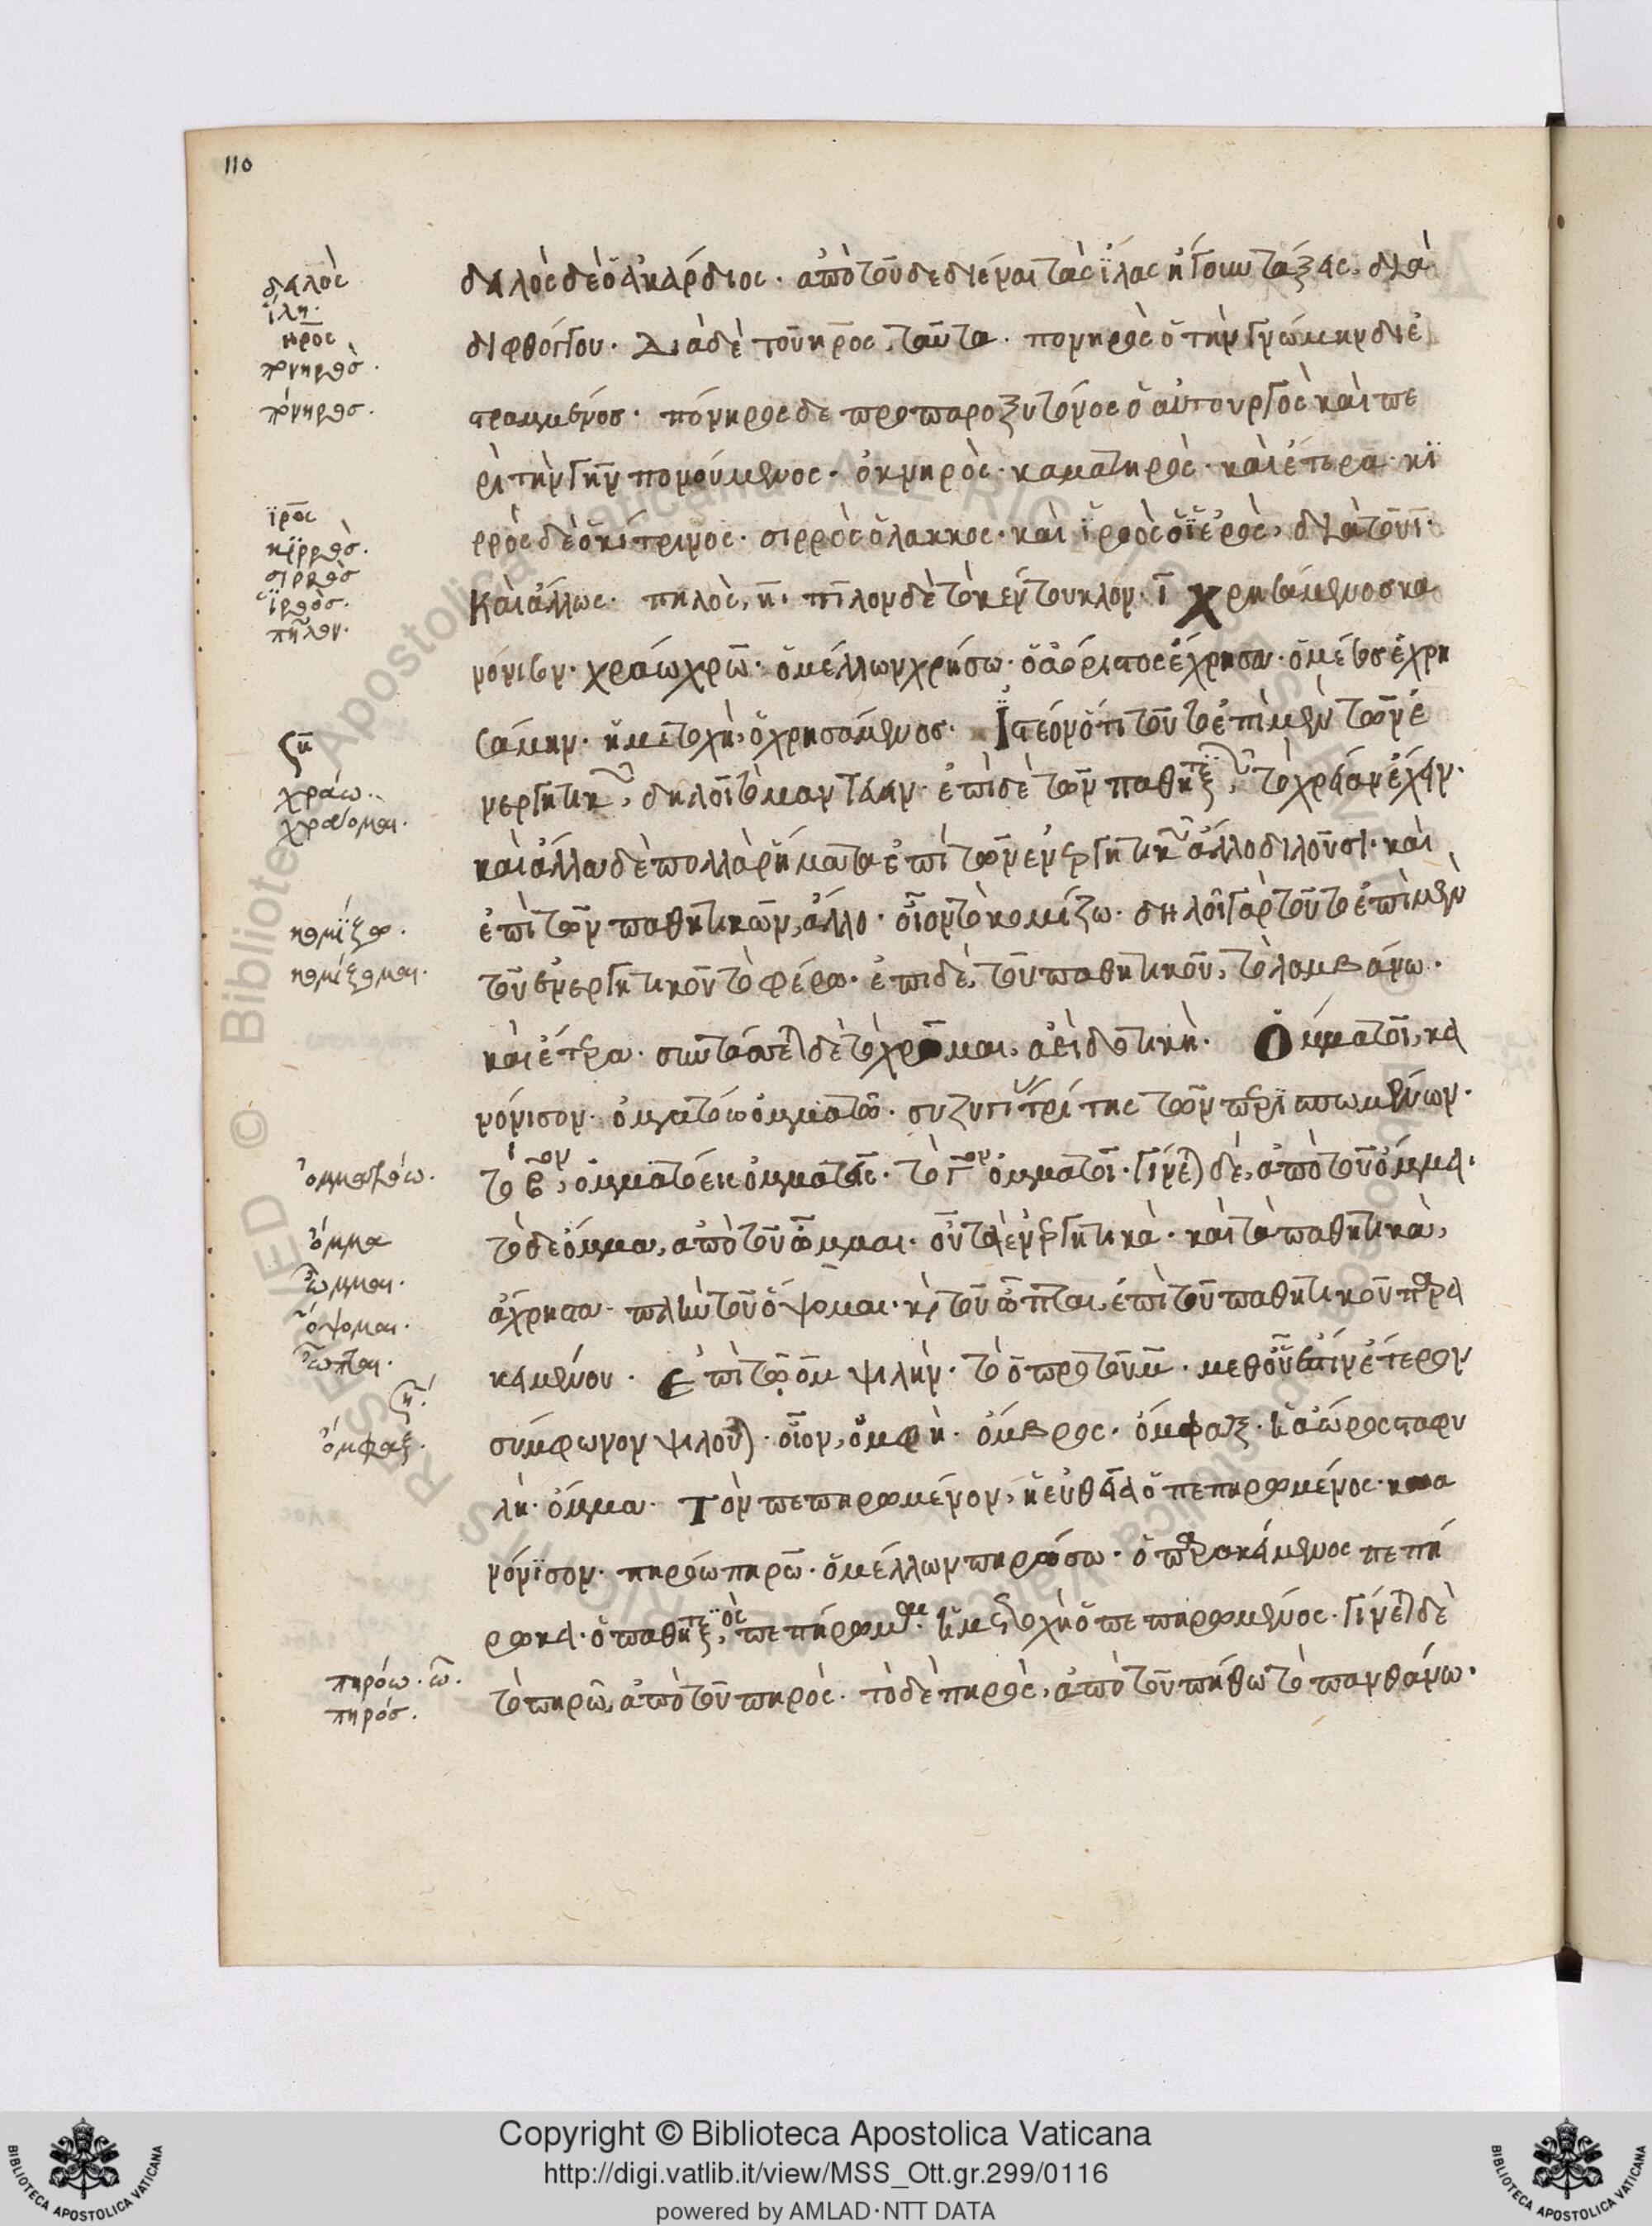 110
δειλὸς
ἴλη.
ηρος
πονηρὸσ.
πόνηρος.
ϊρος
κϊρρὸσ.
σιρρὸσ
ϊρὸσ.
πῖλον.
ζη
χράω.
χράομαι.
κομίζω.
κομίζομαι.
ὀμματόω.
ὄμμα
ὦμμαι.
ὄψομαι.
ὦπται.
ζη
ὄμφαξ.
πηρόω. ῶ.
πηρόσ.
δειλὸς δὲ ὁ ἀκάρδιος. ἀπὸ τοῦ δεδιέναι τὰς ἴλας ἤγουν τάξεις. διὰ
διφθόγγου. Διὰ δὲ τοῦ ηρος, ταῦτα. πονηρὸς ὁ τὴν γνώμην διε
στραμμένοσ. πόνηρος δε προπαροξυτόνος ὁ αὐτουργὸς καὶ πε
ρὶ τὴν γῆν πονούμενος. ὀκνηρὸς. καματηρὸς. καὶ ἕτερα. κϊ
ρρὸς δὲ ὁ κίτρινος. σιρρὸς ὁ λακκος. καὶ ϊρὸς ὁ ϊερὸς, διὰ τοῦ ϊ.
Καὶ ἄλλως. πηλὸς, η. πῖλον δὲ τὸ κεντουκλον. ϊ Χρησάμενοσ κα
νόνισον. χράω χρῶ. ὁ μέλλων χρήσω. ὁ ἀόριστος ἔχρησα. ὁ μέσοσ ἐχρη
σάμην. ἡ μετοχὴ, ὁ χρησάμενοσ. Ἰστέον ὅτι τοῦτο ἐπὶ μὲν τῶν ἐ
νεργητικῶν, δηλοῖ τὸ μαντεύειν. ἐπὶ δὲ τῶν παθητικῶν, τὸ χρείαν ἔχειν.
καὶ ἄλλα δὲ πολλὰ ῥήματα ἐπὶ τῶν ἐνεργητικῶν ἄλλο διλοῦσι. καὶ
ἐπὶ τῶν παθητικῶν, ἄλλο. οἷον τὸ κομίζω. δηλοῖ γὰρ τοῦτο ἐπὶ μὲν
τοῦ ἐνεργητικοῦ τὸ φέρω. ἐπι δὲ, τοῦ παθητικοῦ, τὸ λαμβάνω.
καὶ ἕτερα. συντάσσεται δὲ τὸ χρῶμαι, ἀεὶ δοτικὴ. Ὀμματοῖ, κα
νόνισον. ὀματόω ὀμματῶ. συζυγί τρίτης τῶν περισπωμένων.
τὸ β, ὀμματόεις ὀμματοῖς. τὸ γ ὀμματοῖ. γίνεται δὲ, ἀπὸ τοῦ ὄμμα.
τὸ δε ὄμμα, ἀπὸ τοῦ ὦμμαι. οὗ τὰ ἐνεργητικὰ. καὶ τὰ παθητικὰ,
ἄχρηστα. πλὴν τοῦ ὄψομαι. κὶ τοῦ ὦπται, ἐπὶ τοῦ παθητικοῦ παρα
κειμένου. Ἐπὶ τῷ ομ ψιλὴν. τὸ ο πρὸ τοῦ μ. μεθ' οὗ ἐστιν ἕτερον
σύμφωνον ψιλοῦται. οἷον, ὀμφὴ. ὄμβρος. ὄμφαξ. ἡ ἄωρος σταφυ
λὴ. ὄμμα. Τὸν πεπηρωμένον, ἡ εὐθεῖα ὁ πεπηρωμένος. κα
νόνϊσον. πηρόω πηρῶ. ὁ μέλλων πηρώσω. ὁ παρακείμενος πεπή
ρωκα. ὁ παθητικὸς, πεπήρωμαι. ἡ μετοχὴ ὁ πεπηρωμένος. γίνεται δὲ
τὸ πηρῶ, ἀπὸ τοῦ πηρὸς. τὸ δὲ πηρὸς, ἀπὸ τοῦ πήθω τὸ πανθάνω.
Copyright © Biblioteca Apostolica Vaticana
http://digi.vatlib.it/view/MSS_Ott.gr.299/0116
powered by AMLAD·NTT DATA
BIBLIOTECA APOSTOLICA VATICANA
BIBLIOTECA APOSTOLICA VATICANA